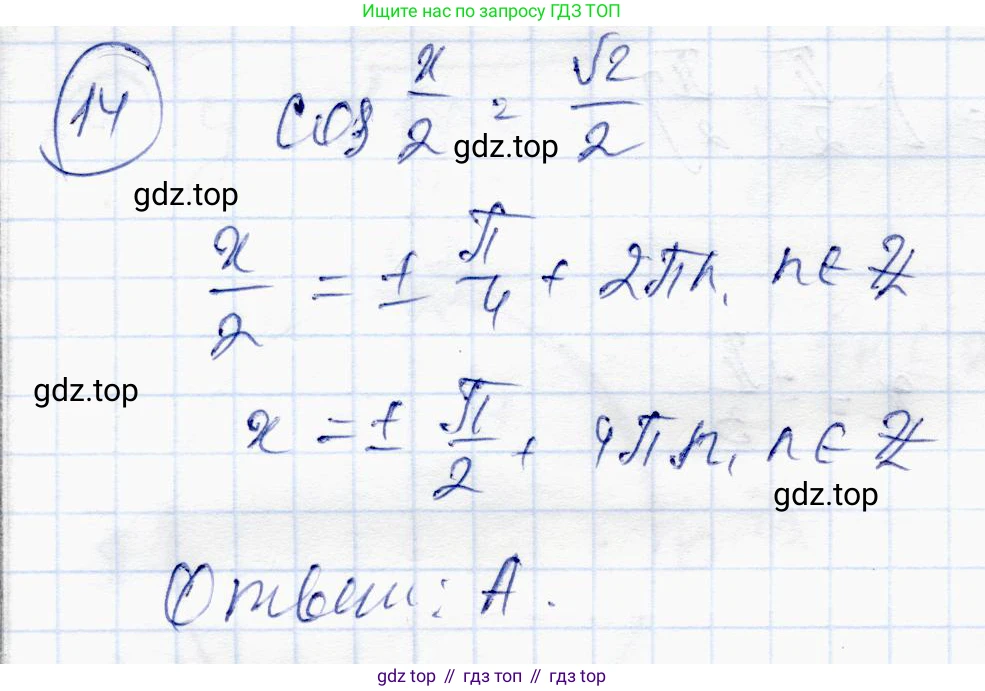 Ищите нас по запросу ГДЗ ТОП
14 cos x/2 = √2/2
gdz.top
gdz.top
x/2 = ± π/4 + 2πn, n ∈ Z
gdz.top
x = ± π/2 + 4πn, n ∈ Z
gdz.top
Ответ: А.
gdz top // гдз топ // гдз top